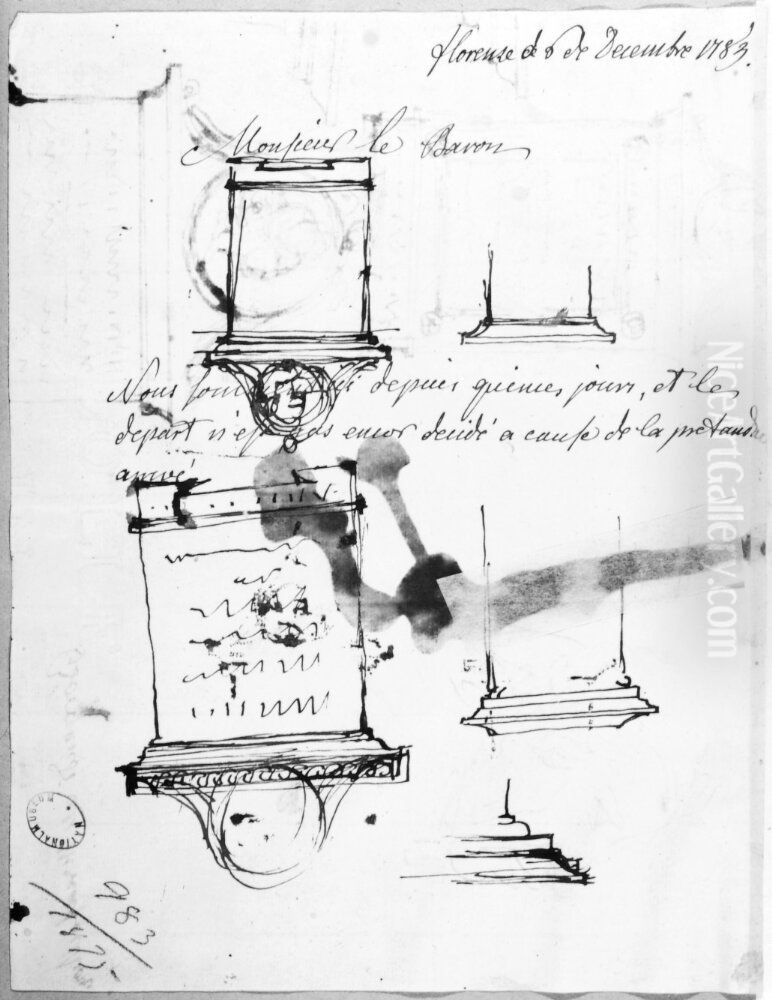 florense d 6 de Decembre 1783.
Monsieur le Baron
Nous som depuis quienes jours, et le
depart n'es pas encor decidé a cause de la pretandue
arrivé
NATIONALMUSEUM
983
NiceArtGallery.com